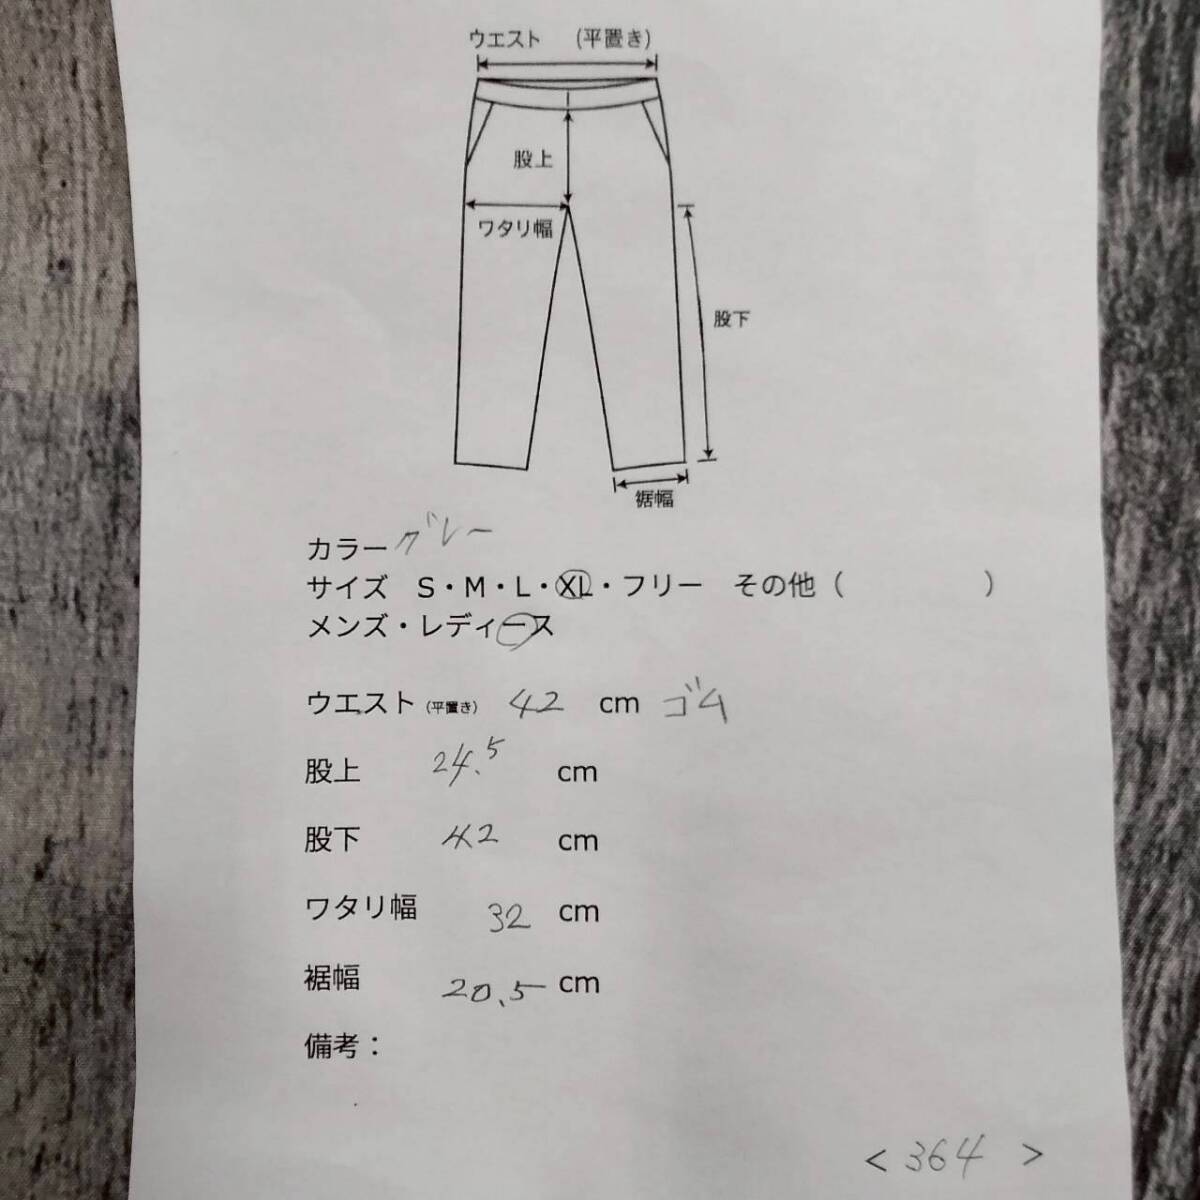 ウエスト (平置き)
股上
ワタリ幅
股下
裾幅
カラー グレー
サイズ S・M・L・XL・フリー その他（ ）
メンズ・レディース
ウエスト（平置き） 42 cm ゴム
股上 24.5 cm
股下 42 cm
ワタリ幅 32 cm
裾幅 20.5 cm
備考：
< 364 >